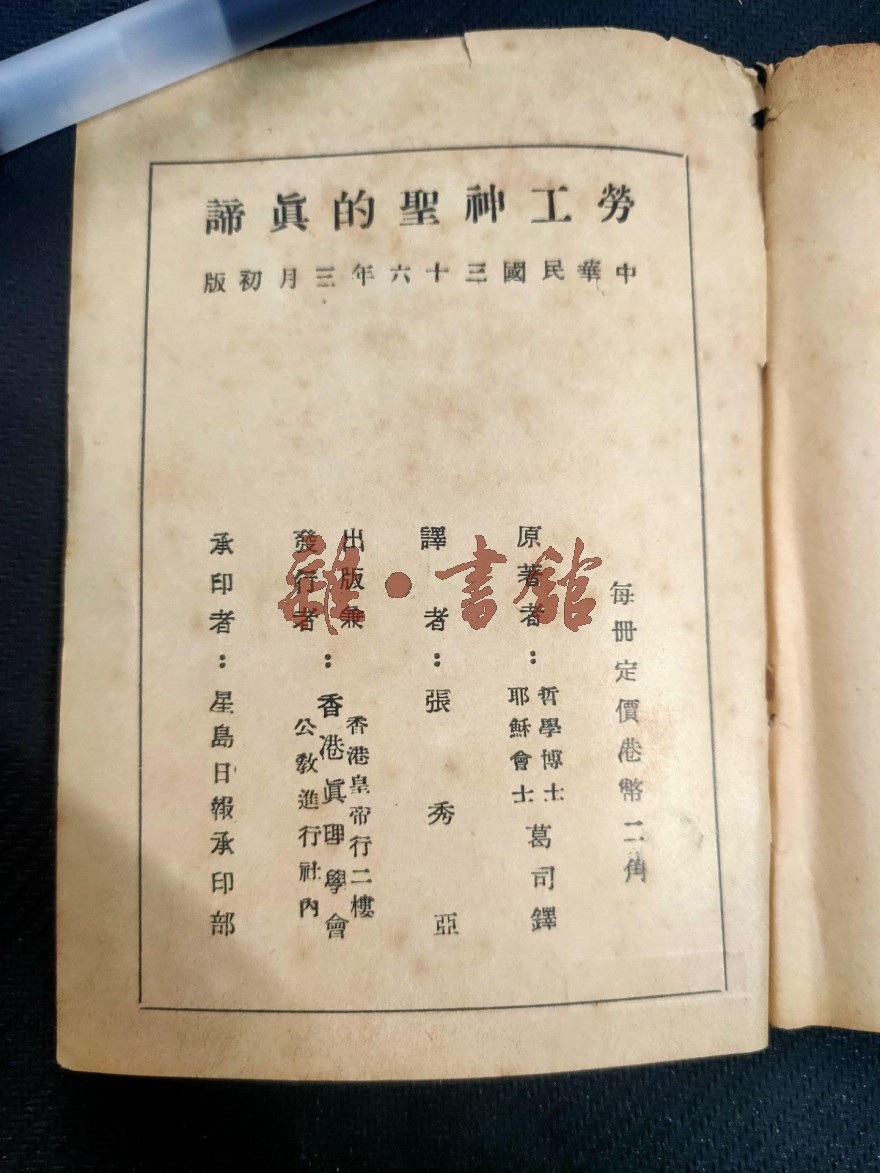 勞工神聖的眞諦
中華民國三十六年三月初版
每冊定價港幣二角
原著者：哲學博士
耶穌會士
葛司鐸
譯者：張秀亞
出版兼
發行者：
香港眞理學會
香港皇帝行二樓
公教進行社內
承印者：星島日報承印部
雜·書館